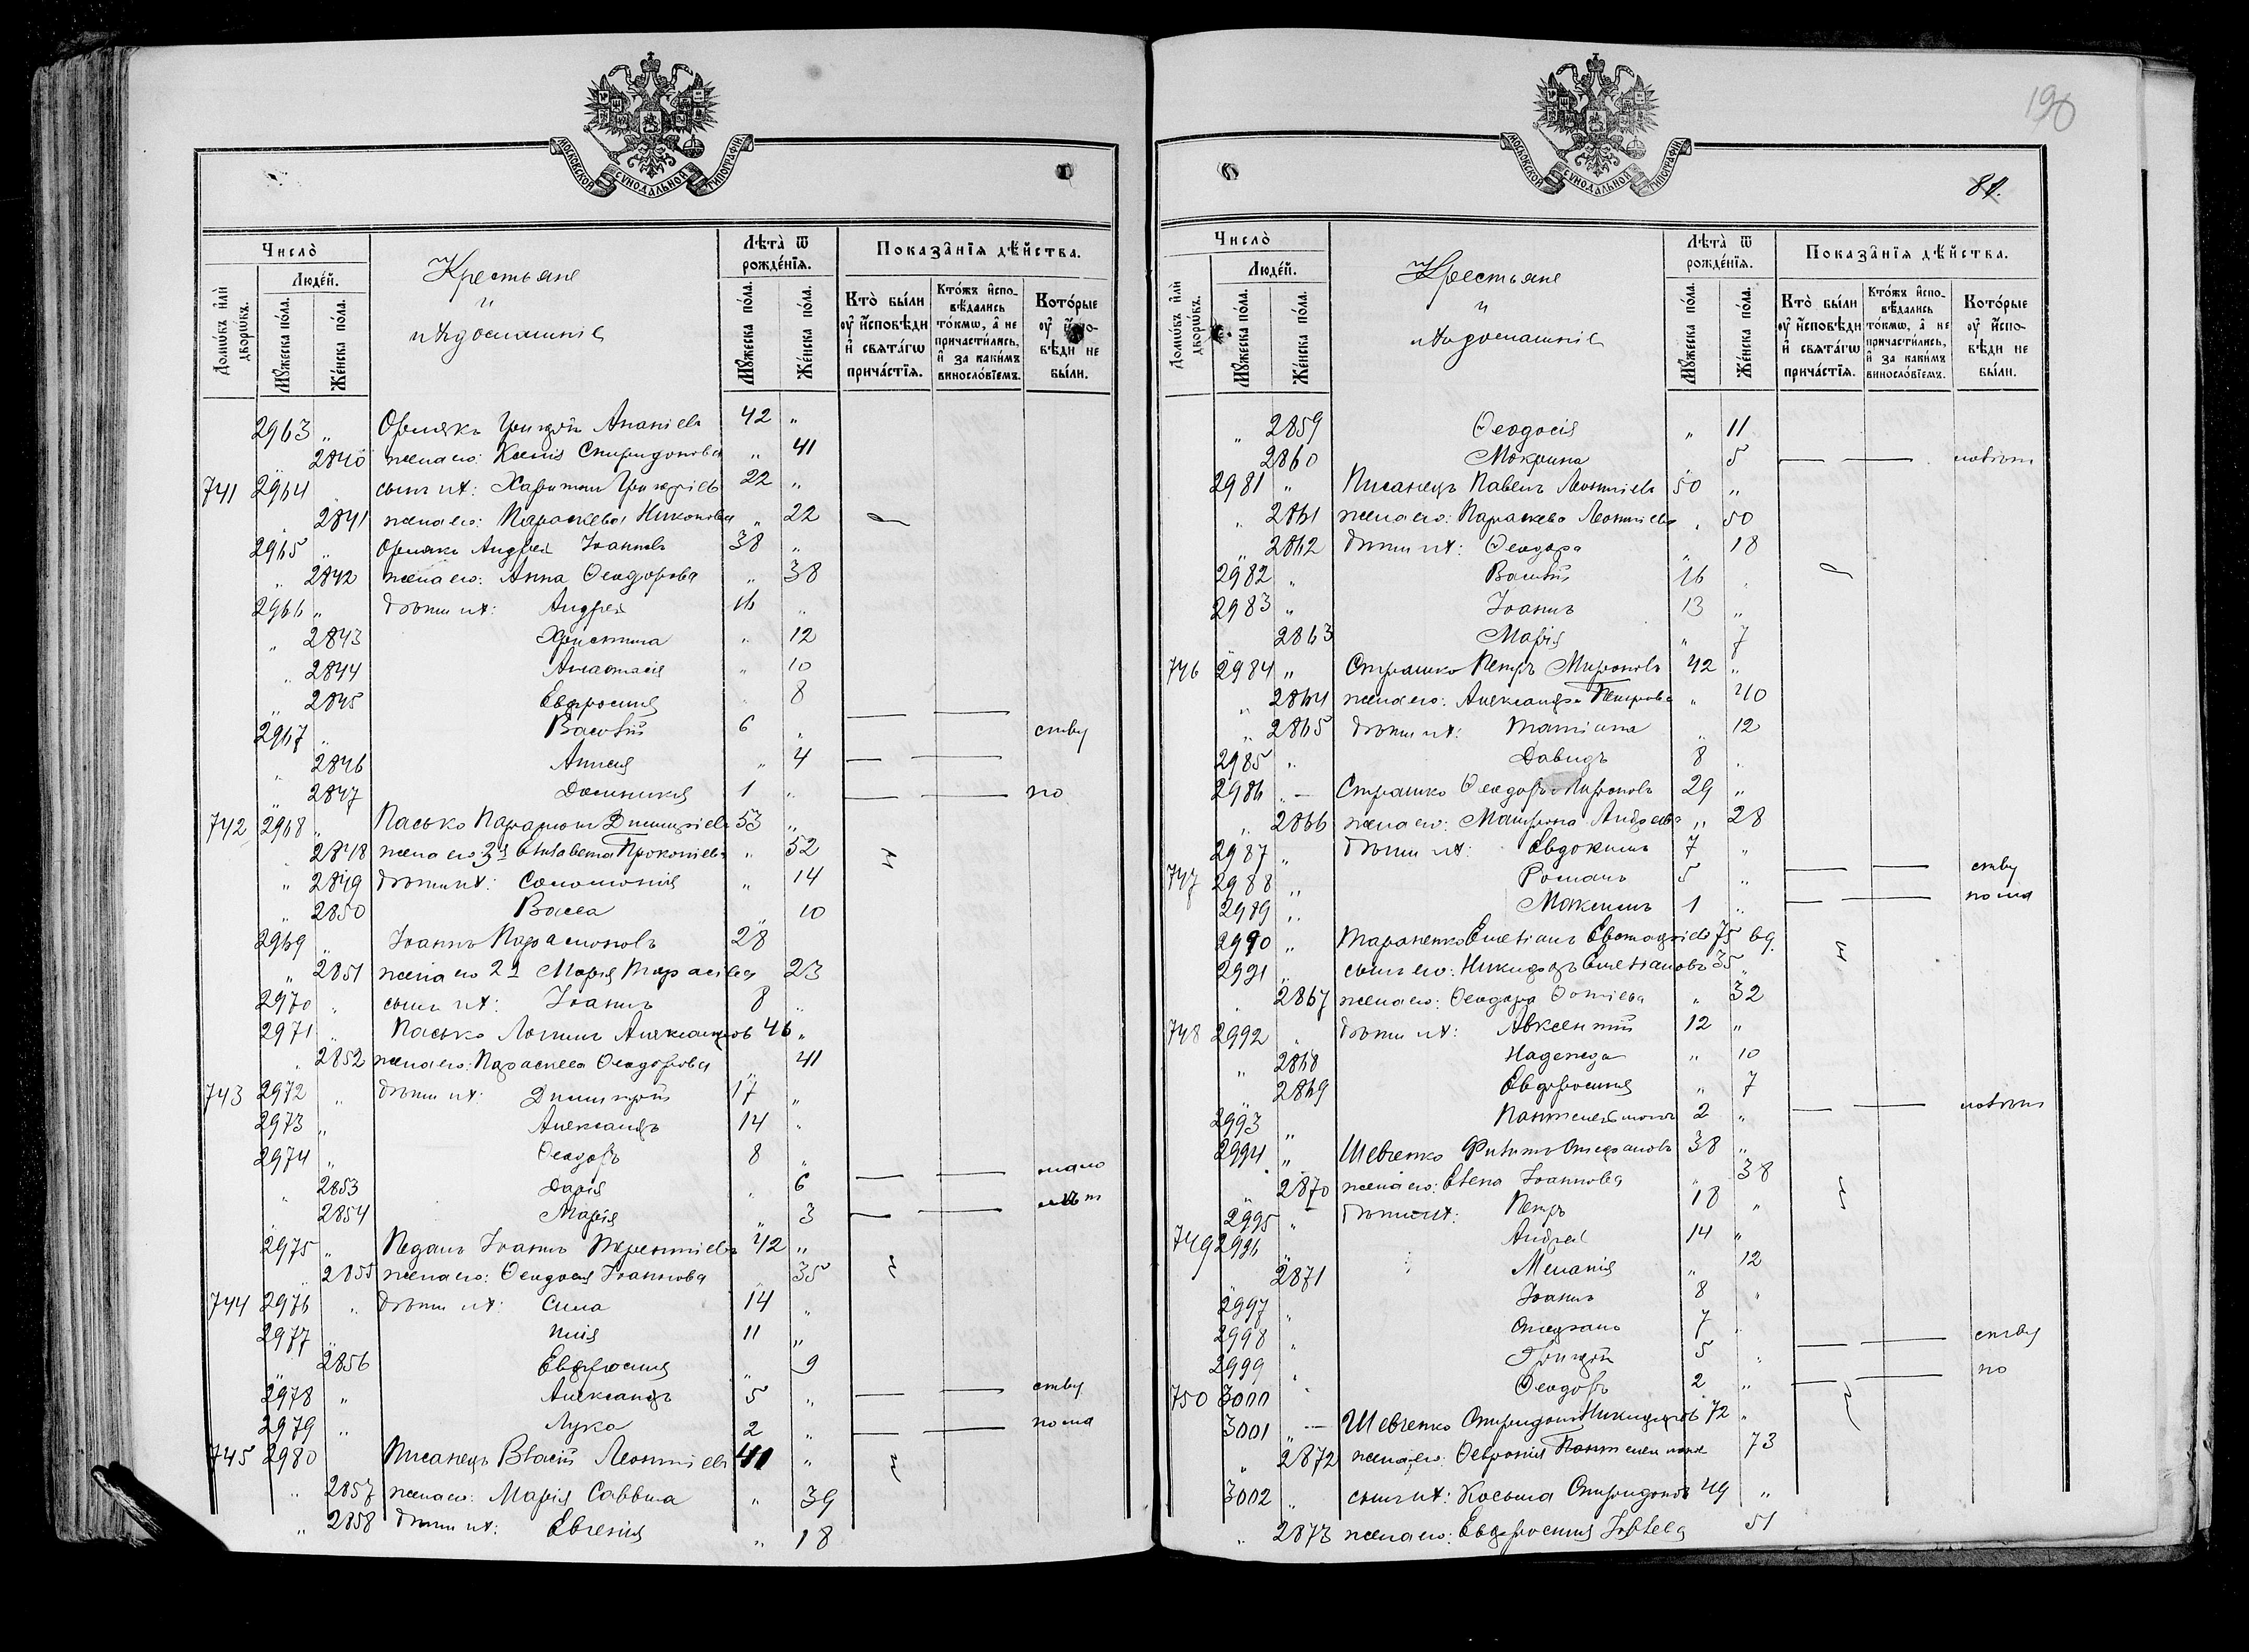 МОСКОВСКОЙ СУНОДАЛЬНОЙ ТИПОГРАФІИ.
Число̀
Людéй.
Домѡ́въ и҆лѝ дворѡ́въ.
Мꙋ́жеска по́ла.
Же́нска по́ла.
Крестьяне
и
ихъ домашніе
Лѣта̀ ѿ рожде́нїѧ.
Мꙋ́жеска по́ла.
Же́нска по́ла.
Показа̑нїѧ дѣ́йства.
Кто̀ бы́ли ᲂу҆ и҆сповѣ́ди и҆ свѧта́гѡ прича́стїѧ.
Кто́жъ и҆сповѣ́дались то́кмѡ, а҆ не причасти́лись, и҆ за каки́мъ виносло́вїемъ.
Кото́рые ᲂу҆ и҆сповѣ́ди не бы́ли.
2963 „ Орлякъ Григорій Ананіевъ 42 „
2840 жена его: Ксенія Спиридонова „ 41
741 2964 сынъ ихъ: Харитонъ Григоріевъ 22 „
„ 2841 жена его: Параскева Никонова „ 22
2965 „ Орлякъ Андрей Іоанновъ 38 „
„ 2842 жена его: Анна Ѳеодорова „ 38
2966 „ дѣти ихъ: Андрей 16 „
„ 2843 Христина „ 12
„ 2844 Анастасія „ 10
„ 2845 Евфросинія „ 8
2967 „ Василій 6 „ — — ству
„ 2846 Анисія „ 4 — —
„ 2847 Домникія 1 „ — — по
742 2968 „ Пасько Парамонъ Димитріевъ 53 „
2848 жена его 3я Елисавета Прокопіева „ 52
„ 2849 дѣти ихъ: Соломонія „ 14
„ 2850 Васса „ 10
2969 „ Іоаннъ Парамоновъ 28
„ 2851 жена его 2я Марія Тарасіева 23
2970 „ сынъ ихъ: Іоаннъ 8 „
2971 „ Пасько Логинъ Александровъ 46 „
„ 2852 жена его: Параскева Ѳеодорова „ 41
743 2972 „ дѣти ихъ: Димитрій 17 „
2973 „ Александръ 14 „
2974 „ Ѳеодоръ 8 „
„ 2853 Дарія „ 6 — — мало
2854 Марія „ 3 — — лѣт
2975 „ Педанъ Іоаннъ Терентіевъ 42 „
„ 2855 жена его: Ѳеодосія Іоаннова „ 35
744 2976 „ дѣти ихъ: Сила 14 „
2977 „ 11 „
„ 2856 Евфросинія „ 9
2978 „ Александръ 5 „ — — ству
2979 „ Лука 2 „ — — по ма
745 2980 Писанецъ Власій Леонтіевъ 41 „
„ 2857 жена его: Марія Саввина „ 39
„ 2858 дѣти ихъ: Евгенія „ 18
190
81.
МОСКОВСКОЙ СУНОДАЛЬНОЙ ТИПОГРАФІИ.
Число̀
Людéй.
Домѡ́въ и҆лѝ дворѡ́въ.
Мꙋ́жеска по́ла.
Же́нска по́ла.
Крестьяне
и
ихъ домашніе
Лѣта̀ ѿ рожде́нїѧ.
Мꙋ́жеска по́ла.
Же́нска по́ла.
Показа̑нїѧ дѣ́йства.
Кто̀ бы́ли ᲂу҆ и҆сповѣ́ди и҆ свѧта́гѡ прича́стїѧ.
Кто́жъ и҆сповѣ́дались то́кмѡ, а҆ не причасти́лись, и҆ за каки́мъ виносло́вїемъ.
Кото́рые ᲂу҆ и҆сповѣ́ди не бы́ли.
„ 2859 Ѳеодосія „ 11
2860 Макрина 5 — —
2981 „ Писанецъ Павелъ Леонтіевъ 50 „
„ 2861 жена его: Параскева Леонтіева „ 50
„ 2862 дѣти ихъ: Ѳеодора „ 18
2982 „ Василій 16 „
2983 „ Іоаннъ 13 „
2863 Марія „ 7
746 2984 „ Страшко Петръ Мироновъ 42 „
„ 2864 жена его: Александра Петрова „ 40
„ 2865 дѣти ихъ: Татіана „ 12
2985 „ Давидъ 8 „
2986 „ — Страшко Ѳеодоръ Мироновъ 29 „
„ 2866 жена его: Матрона Андреева „ 28
2987 „ дѣти ихъ: Евдокимъ 7 „
747 2988 „ Романъ 5 „ — — ству
2989 „ Максимъ 1 „ — — по ма
2990 „ Тараненко Емеліанъ Евстафіевъ 75 вд.
2991 „ сынъ его: Никифоръ Емеліановъ 35 „
„ 2867 жена его: Ѳеодора Фотіева „ 32
748 2992 „ дѣти ихъ: Авксентій 12 „
„ 2868 Надежда „ 10
„ 2869 Евфросинія „ 7
2993 „ Пантелеимонъ 2 „ — —
2994 „ Шевченко Филиппъ Стефановъ 38 „
„ 2870 жена его: Елена Іоаннова „ 38
2995 „ дѣти ихъ: Петръ 18 „
749 2996 „ Андрей 14 „
„ 2871 Меланія „ 12
2997 „ Іоаннъ 8 „
2998 „ Стефанъ 7 „
2999 „ Григорій 5 „ — — ству
750 3000 „ Ѳеодоръ 2 „ — — по
3001 „ — Шевченко Спиридонъ Никифоровъ 72 „
„ 2872 жена его: Ѳевронія Пантелеимонова 73
3002 „ сынъ ихъ: Косьма Спиридоновъ 49 „
„ 2873 жена его: Евфросинія Іовлева 51